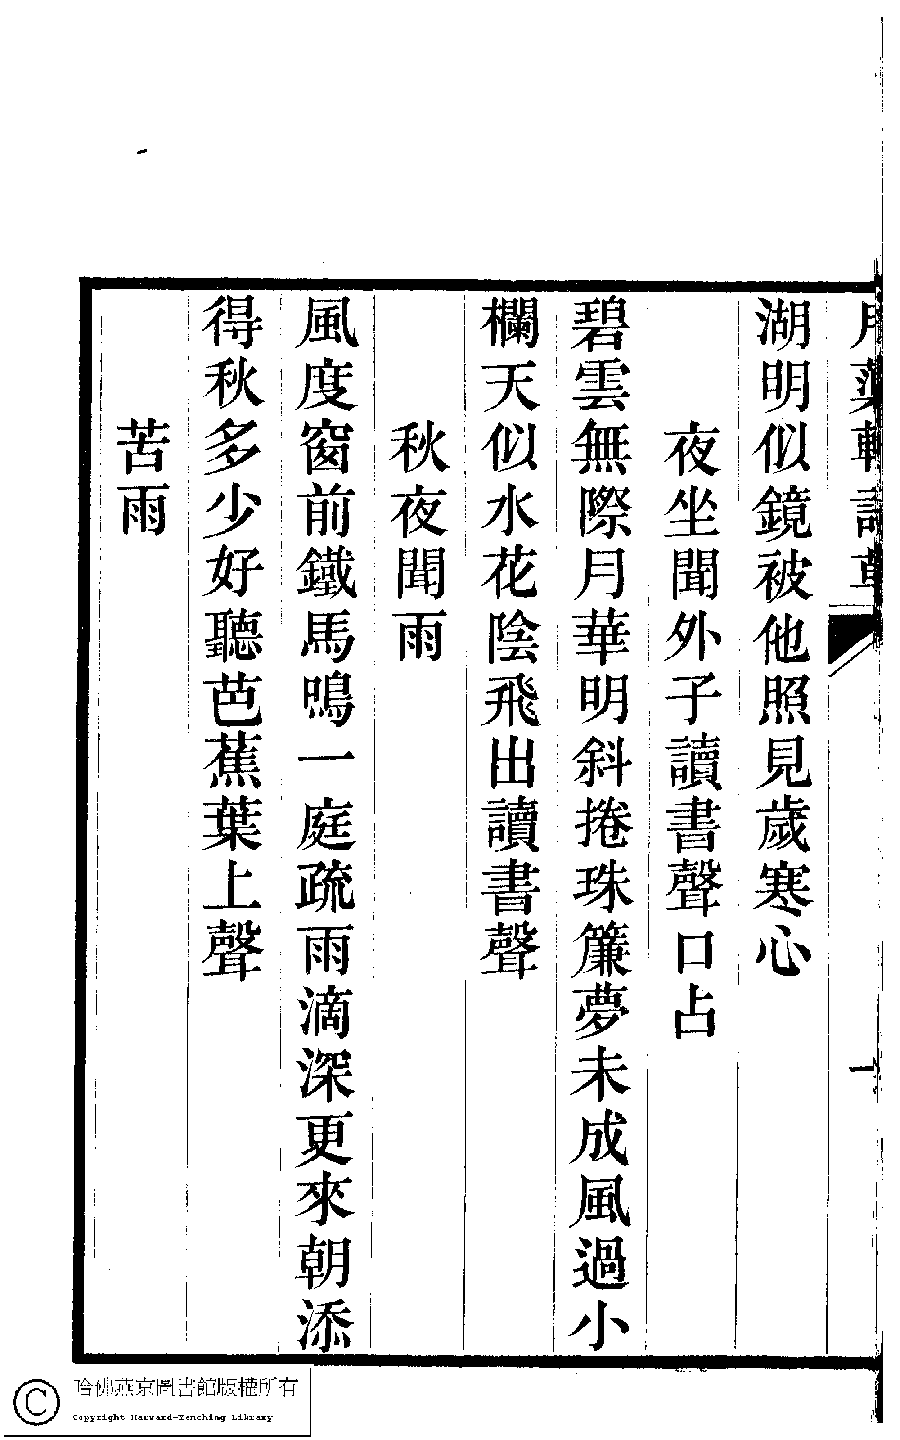 湖明似鏡被他照見歲寒心
夜坐聞外子讀書聲口占
碧雲無際月華明斜捲珠簾夢未成風過小
欄天似水花陰飛出讀書聲
秋夜聞雨
風度窗前鐵馬鳴一庭疏雨滴深更來朝添
得秋多少好聽芭蕉葉上聲
苦雨
哈佛燕京圖書館版權所有
Copyright Harvard-Yenching Library